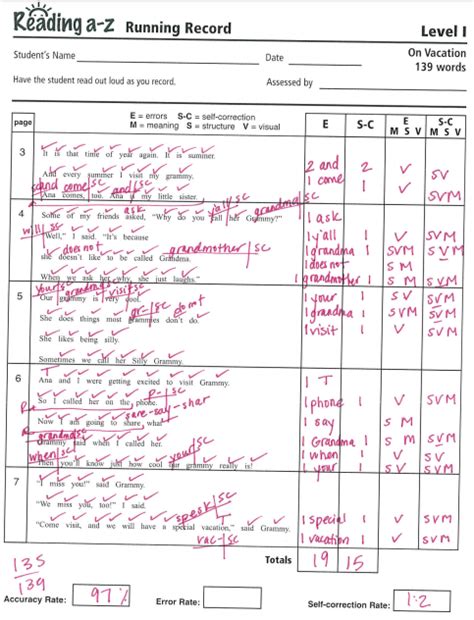 Reading a-z Running Record
Level I
Student's Name
Date
On Vacation
139 words
Have the student read out loud as you record.
Assessed by
page
E = errors S-C = self-correction
M = meaning S = structure V = visual
E S-C E M S V S-C M S V
3
It is that time of year again. It is summer.
And every summer I visit my grammy.
and come/sc and/sc
Ana comes, too. Ana is my little sister.
2 and 2 V SV
1 come 1 SVM
4
y'all/sc grandma/sc
Some of my friends asked, "Why do you call her Grammy?"
will/sc
"Well," I said. "It's because
does not grandmother/sc
she doesn't like to be called Grandma.
When we ask her why, she just laughs."
1 ask
1 y'all 1 V SVM
1 grandma 1 SM SVM
1 does not SM
1 grandma 1 V SVM
5
your/sc grandma/sc visit/sc
Our grammy is very cool.
gr-/sc do not
She does things most grammies don't do.
She likes being silly.
Sometimes we call her Silly Grammy.
1 your 1 SV SVM
1 grandma 1 SM SVM
1 visit 1 V SVM
6
T
Ana and I were getting excited to visit Grammy.
P-/sc
So I called her on the phone.
R sare-say-shar
Now I am going to share what
R grandma/sc
Grammy said when I called her.
when/sc your/sc
Then you'll know just how cool our grammy really is!
1 T
1 phone 1 V SVM
1 say S M
1 Grandma 1 S M SVM
1 when 1 V SVM
1 your 1 SV SVM
7
T
"I miss you!" said Grammy.
"We miss you, too!" I said.
speak/sc
"Come visit, and we will have a special vacation," said Grammy.
T vac-/sc
1 special 1 V SVM
1 vacation 1 V SVM
Totals 19 15
135
139
Accuracy Rate: 97%
Error Rate:
Self-correction Rate: 1:2